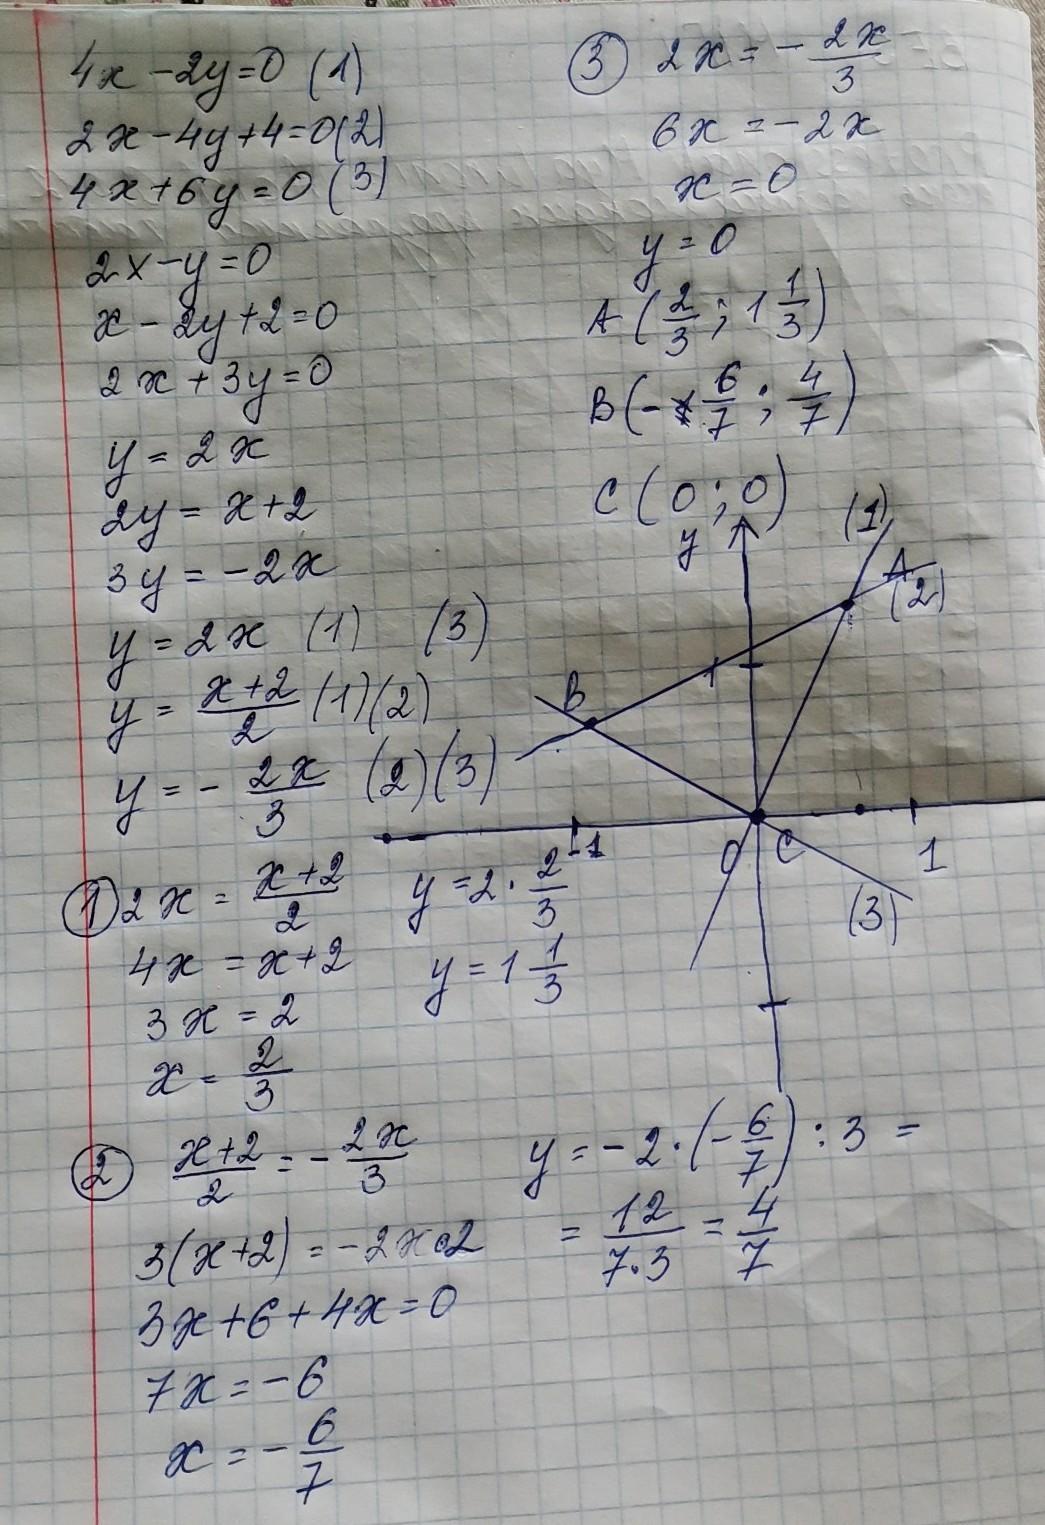 4x - 2y = 0 (1)
2x - 4y + 4 = 0 (2)
4x + 6y = 0 (3)
2x - y = 0
x - 2y + 2 = 0
2x + 3y = 0
y = 2x
2y = x + 2
3y = -2x
y = 2x (1) (3)
y = \frac{x+2}{2} (1)(2)
y = -\frac{2x}{3} (2)(3)
① 2x = \frac{x+2}{2}
4x = x + 2
3x = 2
x = \frac{2}{3}
y = 2 · \frac{2}{3}
y = 1\frac{1}{3}
② \frac{x+2}{2} = -\frac{2x}{3}
3(x+2) = -2x·2
3x + 6 + 4x = 0
7x = -6
x = -\frac{6}{7}
y = -2 · (-\frac{6}{7}) : 3 =
= \frac{12}{7·3} = \frac{4}{7}
③ 2x = -\frac{2x}{3}
6x = -2x
x = 0
y = 0
A (\frac{2}{3}; 1\frac{1}{3})
B (-\frac{6}{7}; \frac{4}{7})
C (0; 0)
y
(1)
A
(2)
B
1
-1
0
C
1
(3)